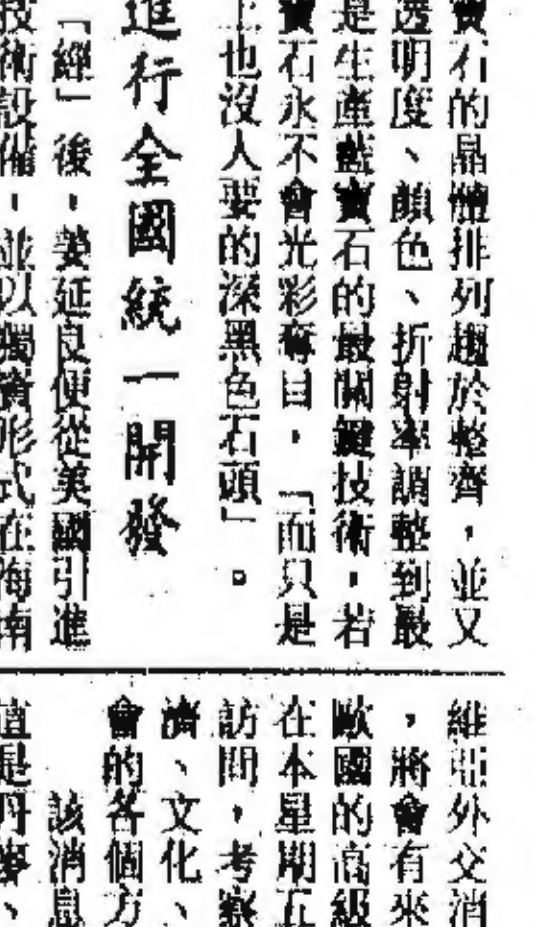 寶石的晶體排列趨於整齊，並又
透明度、顏色、折射率調整到最
是生產藍寶石的最關鍵技術，若
寶石永不會光彩奪目，「而只是
上也沒人要的深黑色石頭」。
進行全國統一開發
「經」後，姜延良便從美國引進
技術設備，並以獨資形式在海南
維亞外交消
，將會有來
歐國的高級
在本星期五
訪問，考察
濟、文化、
會的各個方
該消息
值是丹麥、